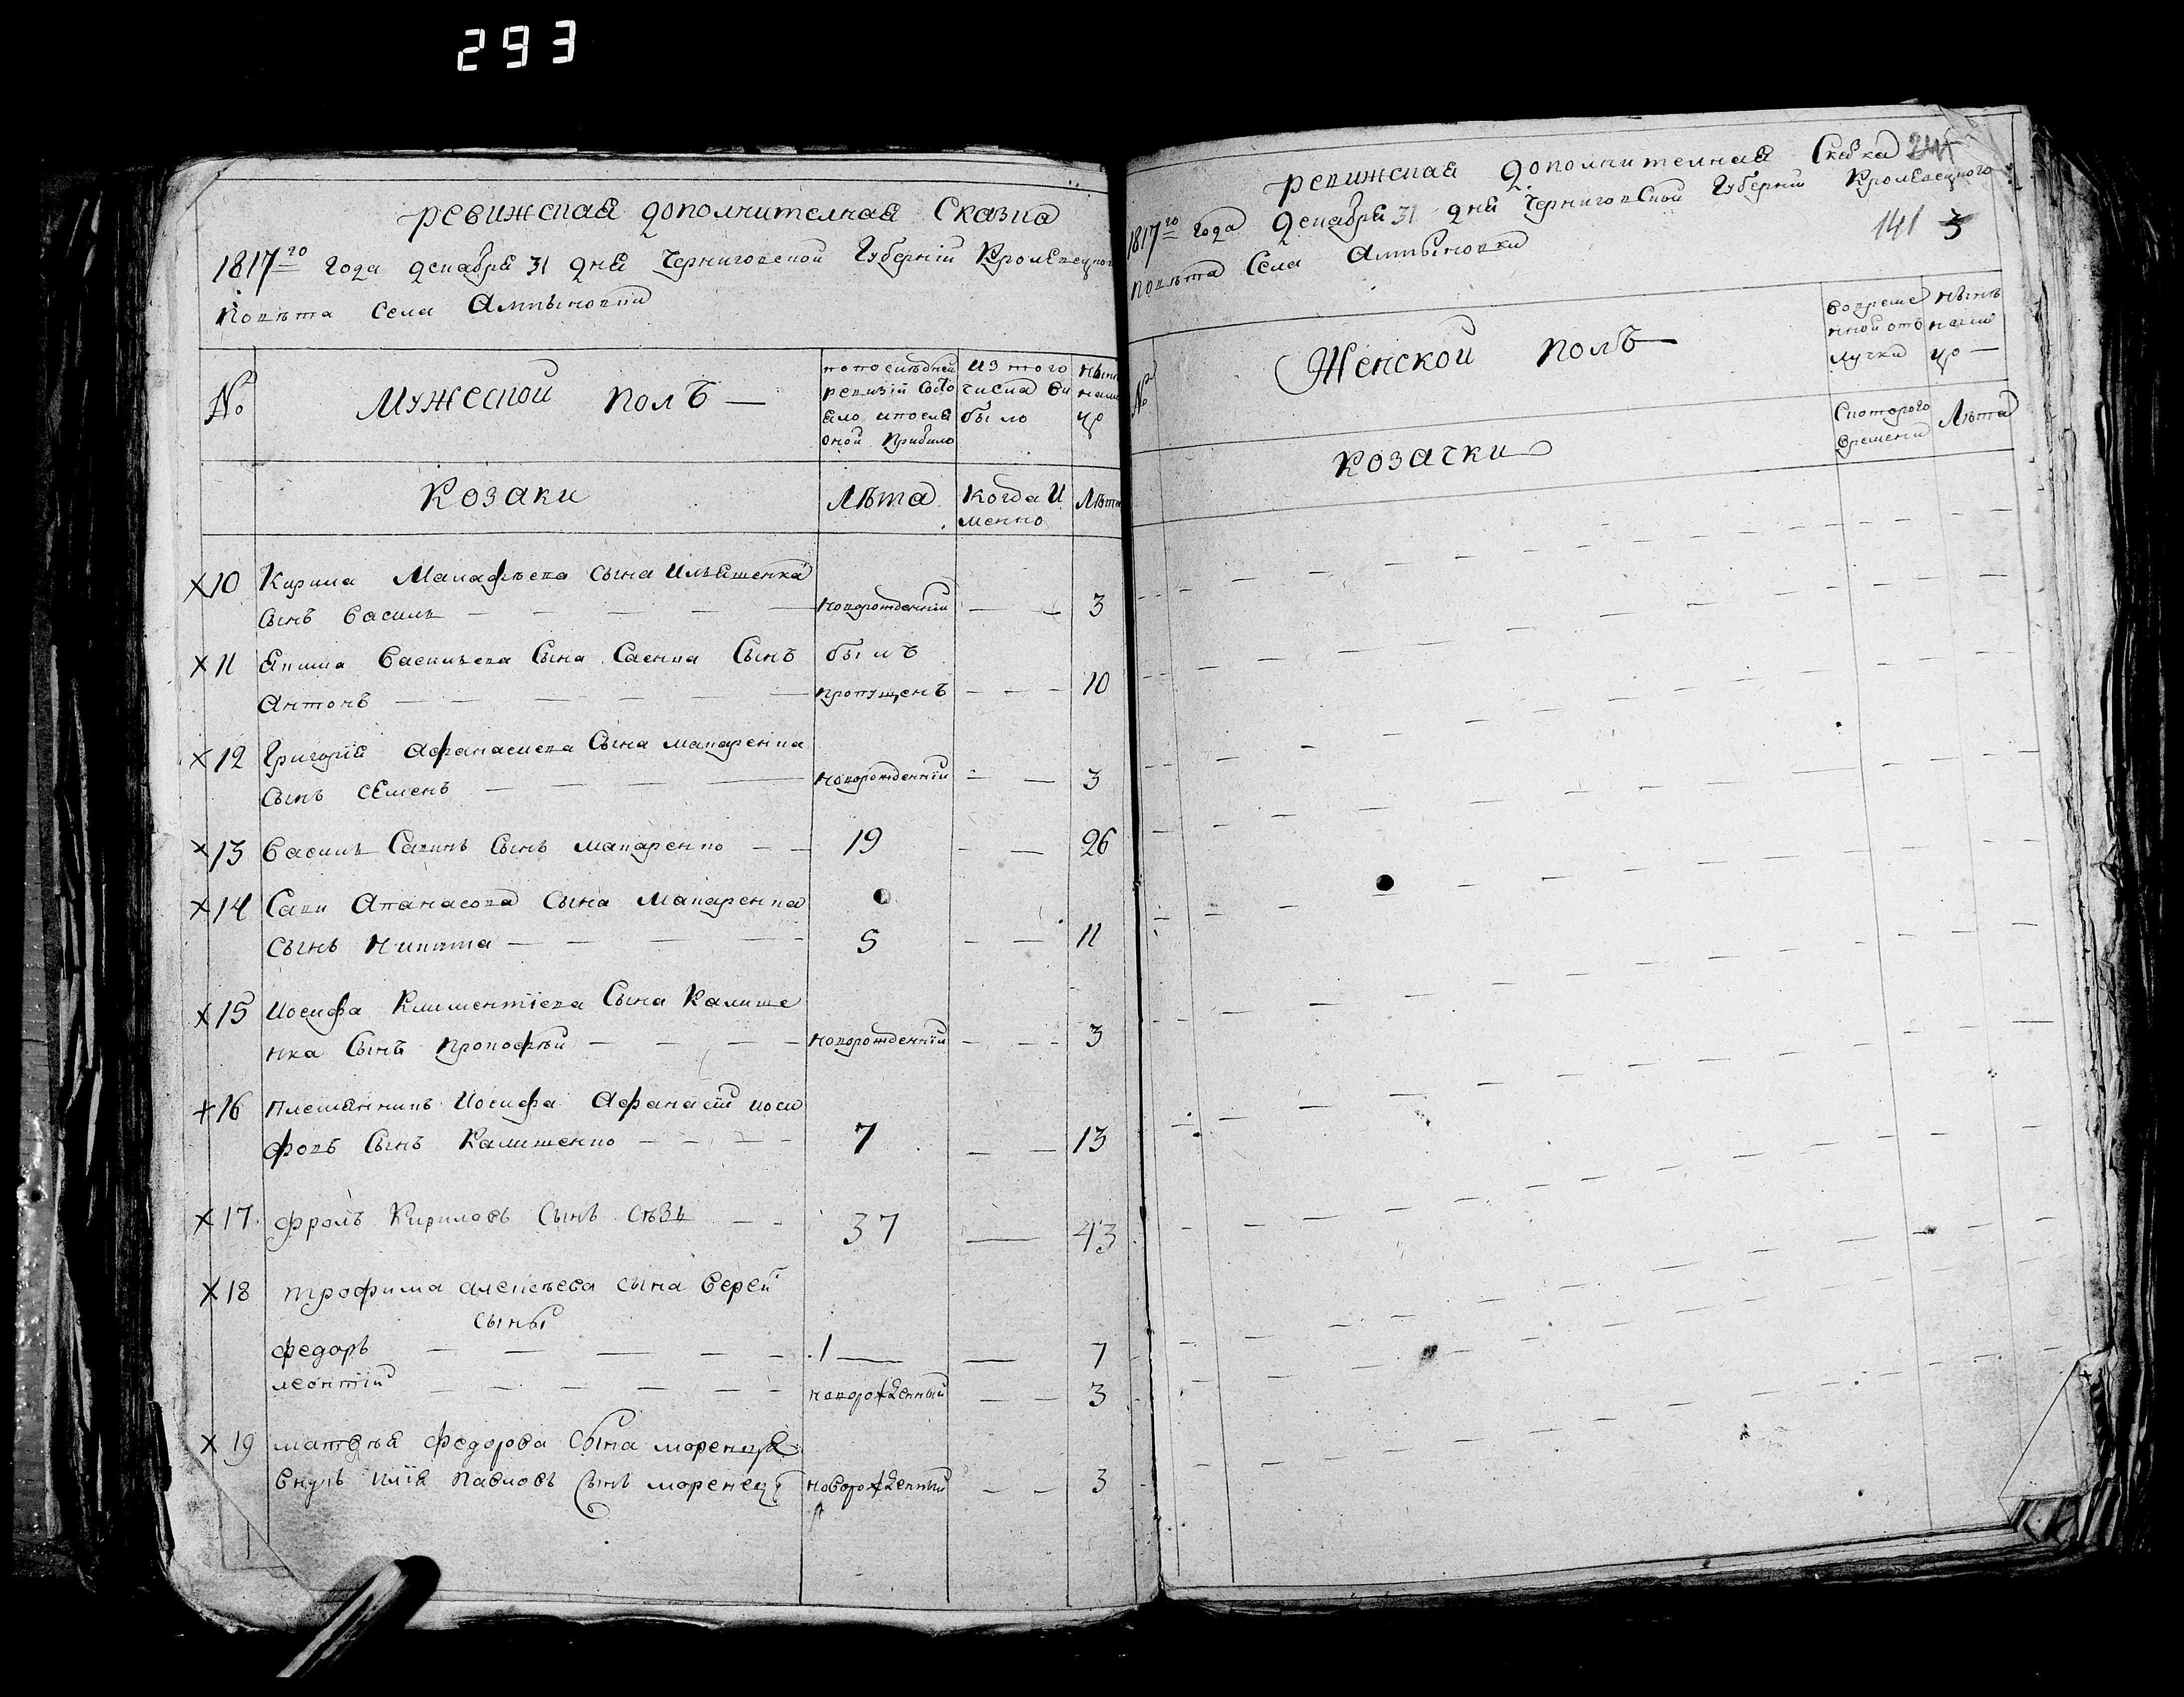 293
ревижская дополнителная Сказка
1817го года декабря 31 дня Черниговской Губерніи Кролевецкого
Повѣта Села Алтыновки
№
Мужеской полъ —
попослѣдней ревизіи состояло ипослѣ оной прибило
изтого числа выбыло
нынѣ налицо
Козаки
Лѣта
Когда именно
Лѣта
×10 Кирила Малафѣева сына Ильяшенка
сынъ Василь — — — — новорожденній — — 3
×11 Якима Василиева Сына Саенка Сынъ былъ
Антонъ — — — — — пропущенъ — — — 10
×12 Григорія Афанасиева Сына макаренка
Сынъ Семенъ — — — — новорожденній — — 3
×13 Василь Савинъ Сынъ макаренко — — 19 — — 26
×14 Сави Атанасова Сына Макаренка
сынъ Никита — — — — 5 — — 11
×15 Иосифа Климентіева Сына Калише
нка Сынъ Прокофѣй — — — — новорожденній — — - 3
×16 племянникъ Иосифа Афанасій иоси
фовъ Сынъ Калишенко — — — — 7 — — 13
×17 фролъ Кириловъ Сынъ Сѣзь — — 37 — 43
×18 трофима алексѣева сына Верей
сыны
федоръ — — — — — 1 — — 7
леонтій — — — — — — новорожденный — — 3
×19 матвѣя федорова сына моренця
внукъ илія павловъ сынъ моренецъ новорожденный — — 3
ревижская дополнителная Сказка
1817го года декабря 31 дня Черниговской Губерніи Кролевецкого
повѣта Села Алтыновки
141 3
№
Женской полъ —
Вовременной отълучки
нынѣ налицо —
Скоторого времени
Лѣта
Козачки